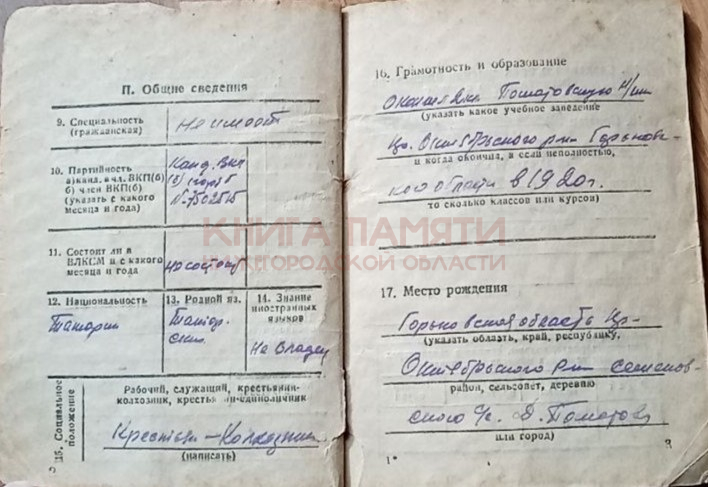 II. Общие сведения
9. Специальность
(гражданская)
Не имеет
10. Партийность
а) канд. в чл. ВКП(б)
б) член ВКП(б)
(указать с какого
месяца и года)
Канд. ВКП
(б)
11. Состоит ли в
ВЛКСМ и с какого
месяца и года
не состоит
12. Национальность
Татарин
13. Родной яз.
Татар-
ский
14. Знание
иностранных
языков
Не владеет
15. Социальное
положение
Рабочий, служащий, крестьянин-
колхозник, крестьянин-единоличник
Крестьян — Колхозник
(написать)
16. Грамотность и образование
(указать какое учебное заведение
Кр. Октябрьского р-н Горьков-
и когда окончил, а если неполностью,
кой области в 1920 г.
то сколько классов или курсов)
17. Место рождения
Горьковская область Кр-
(указать область, край, республику,
Октябрьского р-н семенов-
район, сельсовет, деревню
ского с/с. д.
или город)
1*
3
КНИГА ПАМЯТИ
НИЖЕГОРОДСКОЙ ОБЛАСТИ